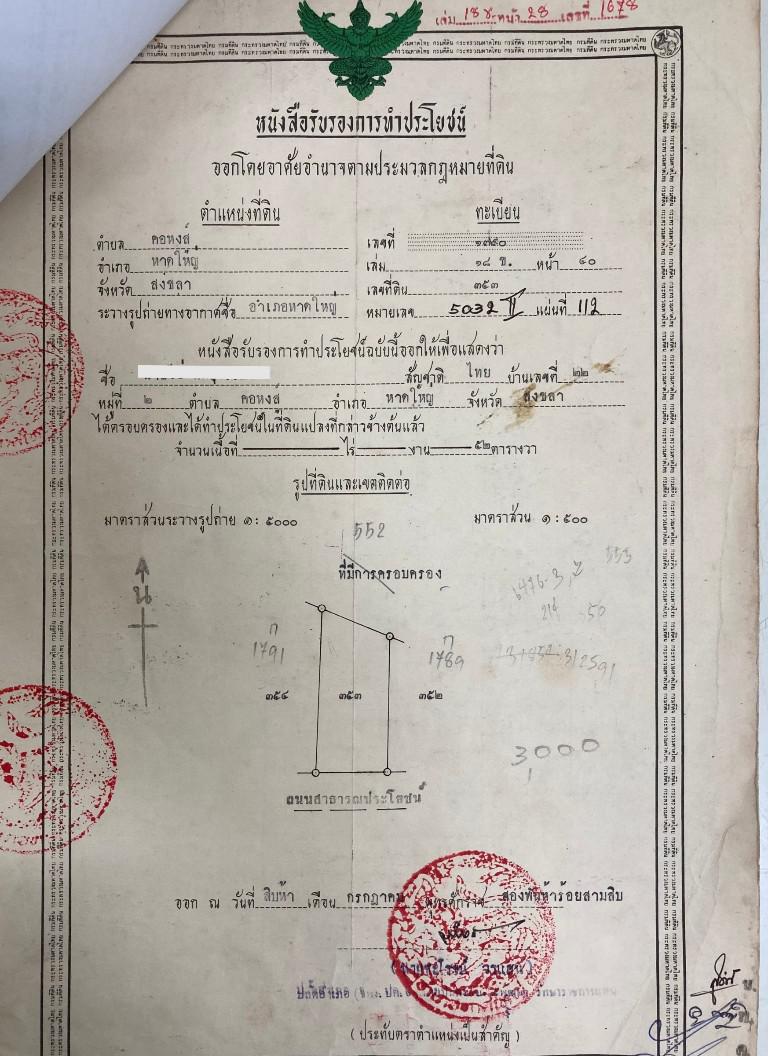 เล่ม 18 ข. หน้า 28 เลขที่ 1678
หนังสือรับรองการทำประโยชน์
ออกโดยอาศัยอำนาจตามประมวลกฎหมายที่ดิน
ตำแหน่งที่ดิน ทะเบียน
ตำบล คอหงส์ เลขที่ ๑๗๙๐
อำเภอ หาดใหญ่ เล่ม ๑๘ ข. หน้า ๔๐
จังหวัด สงขลา เลขที่ดิน ๓๕๓
ระวางรูปถ่ายทางอากาศชื่อ อำเภอหาดใหญ่ หมายเลข 5032 II แผ่นที่ 112
หนังสือรับรองการทำประโยชน์ฉบับนี้ออกให้เพื่อแสดงว่า
ชื่อ สัญชาติ ไทย บ้านเลขที่ ๒๒
หมู่ที่ ๒ ตำบล คอหงส์ อำเภอ หาดใหญ่ จังหวัด สงขลา
ได้ครอบครองและได้ทำประโยชน์ในที่ดินแปลงที่กล่าวข้างต้นแล้ว
จำนวนเนื้อที่ ไร่ งาน ๕๒ ตารางวา
รูปที่ดินและเขตติดต่อ
มาตราส่วนระวางรูปถ่าย ๑ : ๕๐๐๐ มาตราส่วน ๑ : ๕๐๐
552
ที่มีการครอบครอง
553
น
214 50
ก ก
1791 1789
๓๕๔ ๓๕๓ ๓๕๒
3000
ถนนสาธารณประโยชน์
ออก ณ วันที่ สิบห้า เดือน กรกฎาคม พุทธศักราช สองพันห้าร้อยสามสิบ
ปลัดอำเภอ
( ประทับตราตำแหน่งเป็นสำคัญ )